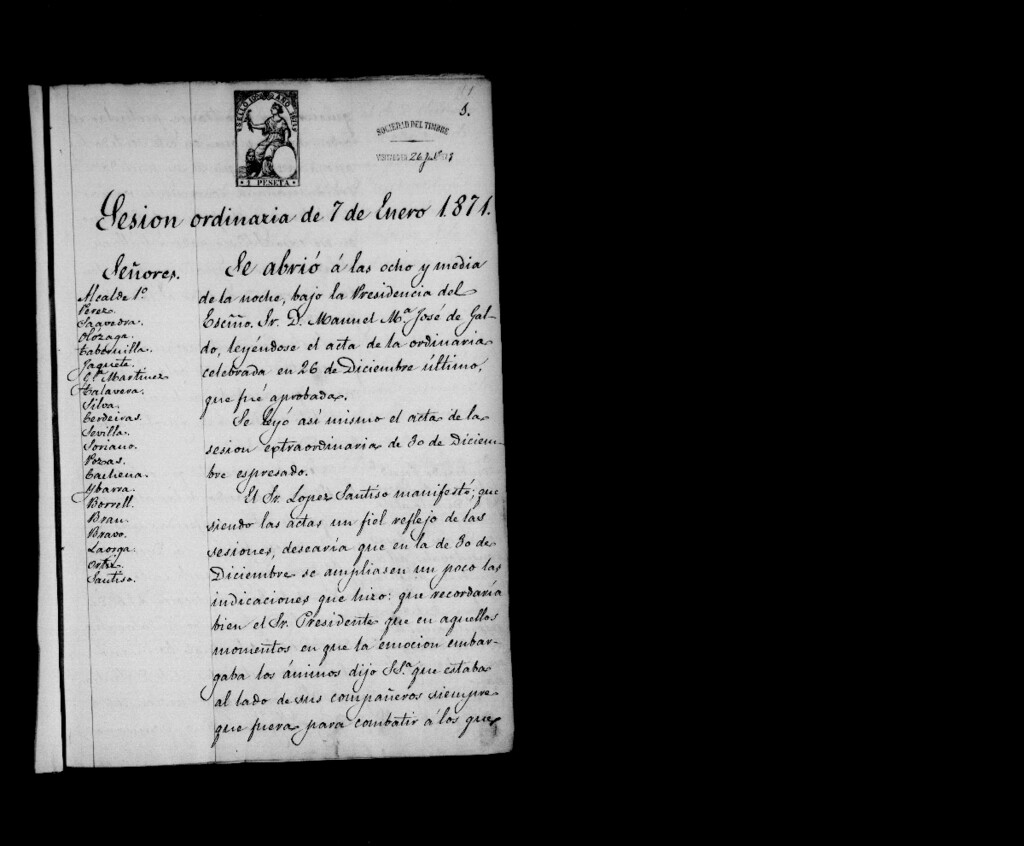 SELLO 10º AÑO 1871
2 PESETA
SOCIEDAD DEL TIMBRE
1.
Sesion ordinaria de 7 de Enero 1.871.
Señores.
Alcalde 1º
Perez.
Saavedra.
Olózaga.
Tabernilla.
Jaquete.
Gª Martinez
Talavera.
Silva.
Cerdeiras.
Sevilla.
Soriano.
Pozas.
Cachena.
Ybarra.
Borrell.
Brau.
Bravo.
Laorga.
Ortiz.
Santiso.
Se abrió á las ocho y media
de la noche, bajo la Presidencia del
Escmo. Sr. D. Manuel Mª José de Gal-
do, leyéndose el acta de la ordinaria
celebrada en 26 de Diciembre último,
que fué aprobada.
Se leyó asi mismo el acta de la
sesion extraordinaria de 30 de Diciem-
bre espresado.
El Sr. Lopez Santiso manifestó; que
siendo las actas un fiel reflejo de las
sesiones, desearía que en la de 30 de
Diciembre se ampliasen un poco las
indicaciones que hizo: que recordaría
bien el Sr. Presidente que en aquellos
momentos en que la emocion embar-
gaba los ánimos dijo S.Sª que estaba
al lado de sus compañeros siempre
que fuera para combatir á los que